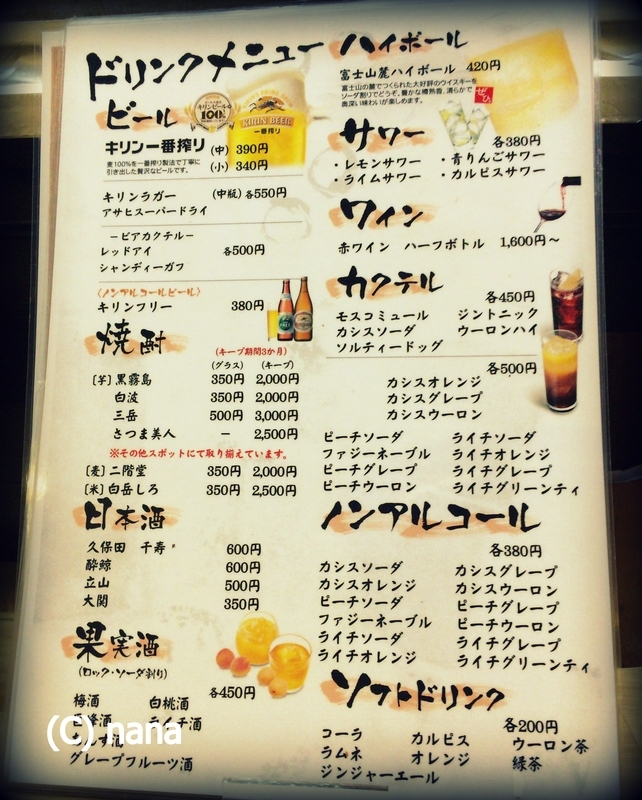 ドリンクメニュー
ビール
キリンビール
100
KIRIN BEER
一番搾り
キリン一番搾り (中) 390円
(小) 340円
麦100%を一番搾り製法で丁寧に
引き出した贅沢なビールです。
キリンラガー (中瓶) 各550円
アサヒスーパードライ
－ビアカクテル－
レッドアイ 各500円
シャンディーガフ
〈ノンアルコールビール〉
キリンフリー 380円
焼酎
(キープ期間3か月)
(グラス) (キープ)
〔芋〕黒霧島 350円 2,000円
白波 350円 2,000円
三岳 500円 3,000円
さつま美人 － 2,500円
※その他スポットにて取り揃えています。
〔麦〕二階堂 350円 2,000円
〔米〕白岳しろ 350円 2,500円
日本酒
久保田 千寿 600円
酔鯨 600円
立山 500円
大関 350円
果実酒
(ロック・ソーダ割り)
各450円
梅酒 白桃酒
ライチ酒
グレープフルーツ酒
ハイボール
富士山麓ハイボール 420円
富士山の麓でつくられた大好評のウイスキーを
ソーダ割りでどうぞ。豊かな樽熟香、清らかで
奥深い味わいが楽しめます。
ぜひ
サワー
各380円
・レモンサワー ・青りんごサワー
・ライムサワー ・カルピスサワー
ワイン
赤ワイン ハーフボトル 1,600円～
カクテル
各450円
モスコミュール ジントニック
カシスソーダ ウーロンハイ
ソルティードッグ
各500円
カシスオレンジ
カシスグレープ
カシスウーロン
ピーチソーダ ライチソーダ
ファジーネーブル ライチオレンジ
ピーチグレープ ライチグレープ
ピーチウーロン ライチグリーンティ
ノンアルコール
各380円
カシスソーダ カシスグレープ
カシスオレンジ カシスウーロン
ピーチソーダ ピーチグレープ
ファジーネーブル ピーチウーロン
ライチソーダ ライチグレープ
ライチオレンジ ライチグリーンティ
ソフトドリンク
各200円
コーラ カルピス ウーロン茶
ラムネ オレンジ 緑茶
ジンジャーエール
(C) nana